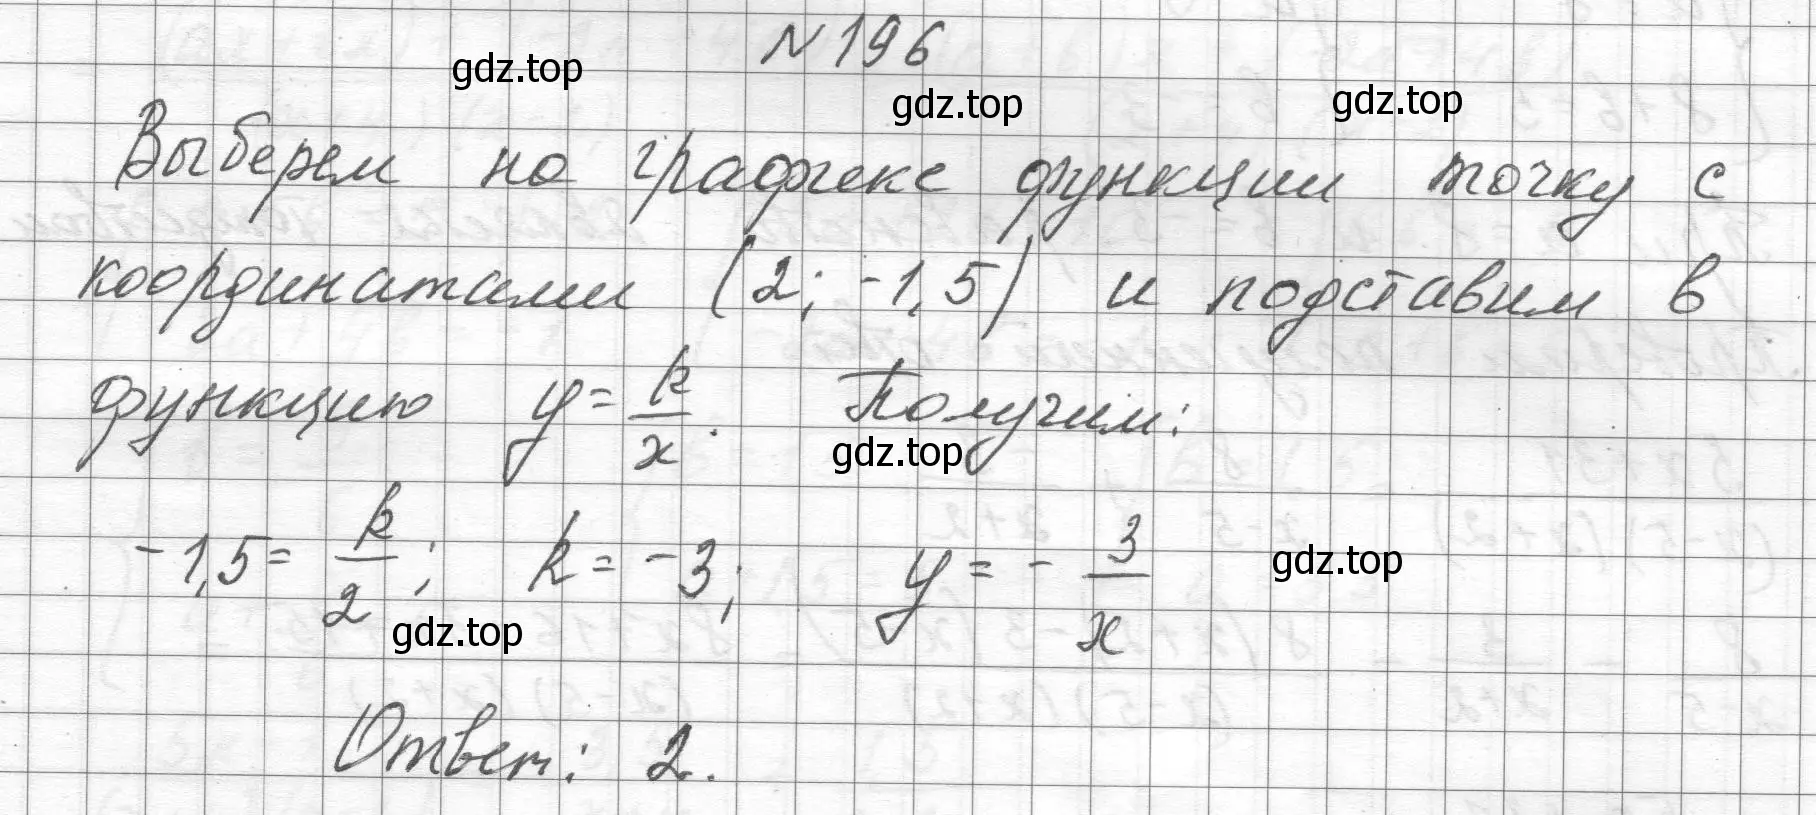 N 196
gdz.top
gdz.top
gdz.top
Выберем на графике функции точку с
координатами (2; -1,5) и подставим в
функцию y = k/x. Получим:
gdz.top
-1,5 = k/2; k = -3; y = - 3/x
gdz.top
gdz.top
Ответ: 2.